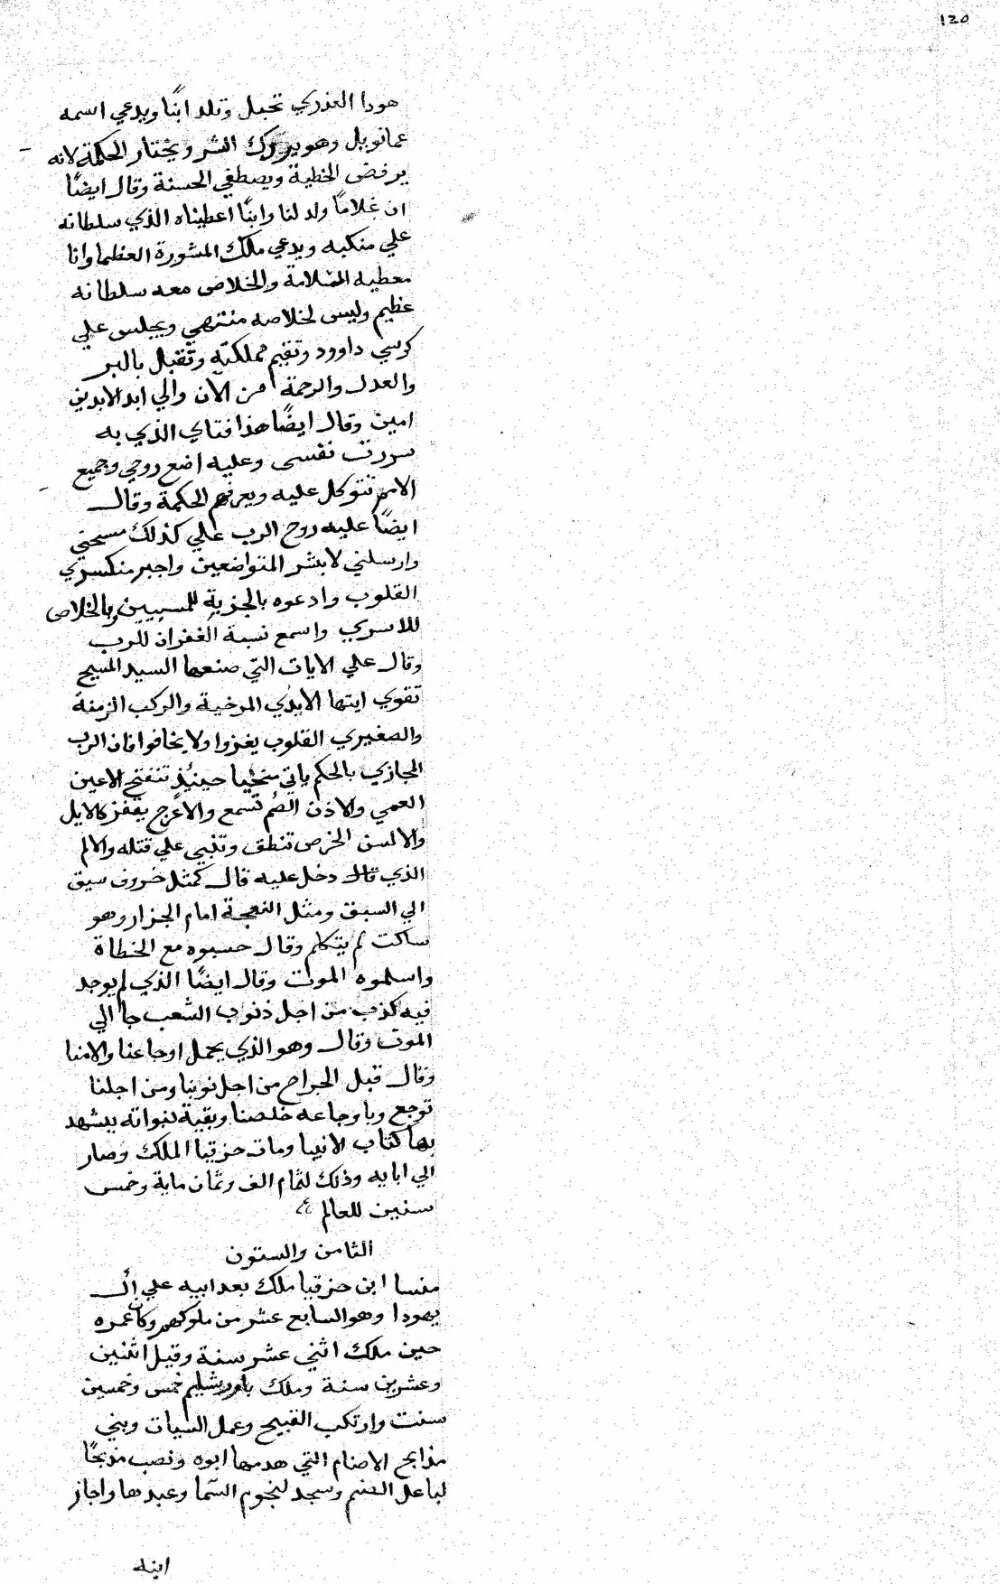 120
هودا العذري تحبل وتلد ابنًا ويدعي اسمه
عمانويل وهو يترك الشر ويختار الحكمة لانه
يرفض الخطية ويصطفي الحسنة وقال ايضًا
ان غلامًا ولد لنا وابنًا اعطيناه الذي سلطانه
علي منكبه ويدعي ملك المشورة العظما وانا
معطيه السلامة والخلاص معه سلطانه
عظيم وليس لخلاصه منتهي ويجلس علي
كرسي داوود وتقيم مملكته وتقبل بالبر
والعدل والرحمة من الآن والي ابد الابدين
امين وقال ايضًا هذا فتاي الذي به
سررت نفسى وعليه اضع روحي وجميع
الامم تتوكل عليه ويعرفهم الحكمة وقال
ايضًا عليه روح الرب علي كذلك مسحني
وارسلني لابشر المتواضعين واجبر منكسري
القلوب وادعوه بالجزية للمسبيين وبالخلاص
للاسري واسمع نسبة الغفران للرب
وقال علي الايات التي صنعها السيد المسيح
تقوي ايتها الايدي المرخية والركب الزمنة
والصغيري القلوب يغزوا ولا يخافوا فان الرب
المجازي بالحكم ياتي منخيا حينئذٍ تنفتح الاعين
العمي والاذن الصُم تسمع والاعرج يقفز كالايل
والالسن الخرص تنطق وتنبي علي قتله والالم
الذي قال دخل عليه قال كمثل خروف سيق
الي السبق ومثل النعجة امام الجزار وهو
ساكت لم يتكلم وقال حسبوه مع الخطاة
واسلموه الموت وقال ايضًا الذي لم يوجد
فيه كذب من اجل ذنوب الشعب جا الي
الموت وقال وهو الذي يحمل اوجاعنا والامنا
وقال قبل الجراح من اجل نوبنا ومن اجلنا
توجع وباوجاعه خلصنا وبقية نبواته يشهد
بها كتاب الانبيا ومات حزقيا الملك وصار
الي ابايه وذلك لتمام الف وثمان ماية وخمس
سنين للعالم
الثامن والستون
منسا ابن حزقيا ملك بعد ابيه علي ال
يهودا وهو السابع عشر من ملوكهم وكان عمره
حين ملك اثني عشر سنة وقيل اثنين
وعشرين سنة وملك باورشليم خمس وخمسين
سنت وارتكب القبيح وعمل السيات وبني
مذابح الاصنام التي هدمها ابوه ونصب مذبحًا
لباعل الصنم وسجد لنجوم السما وعبدها واجاز
ابنه